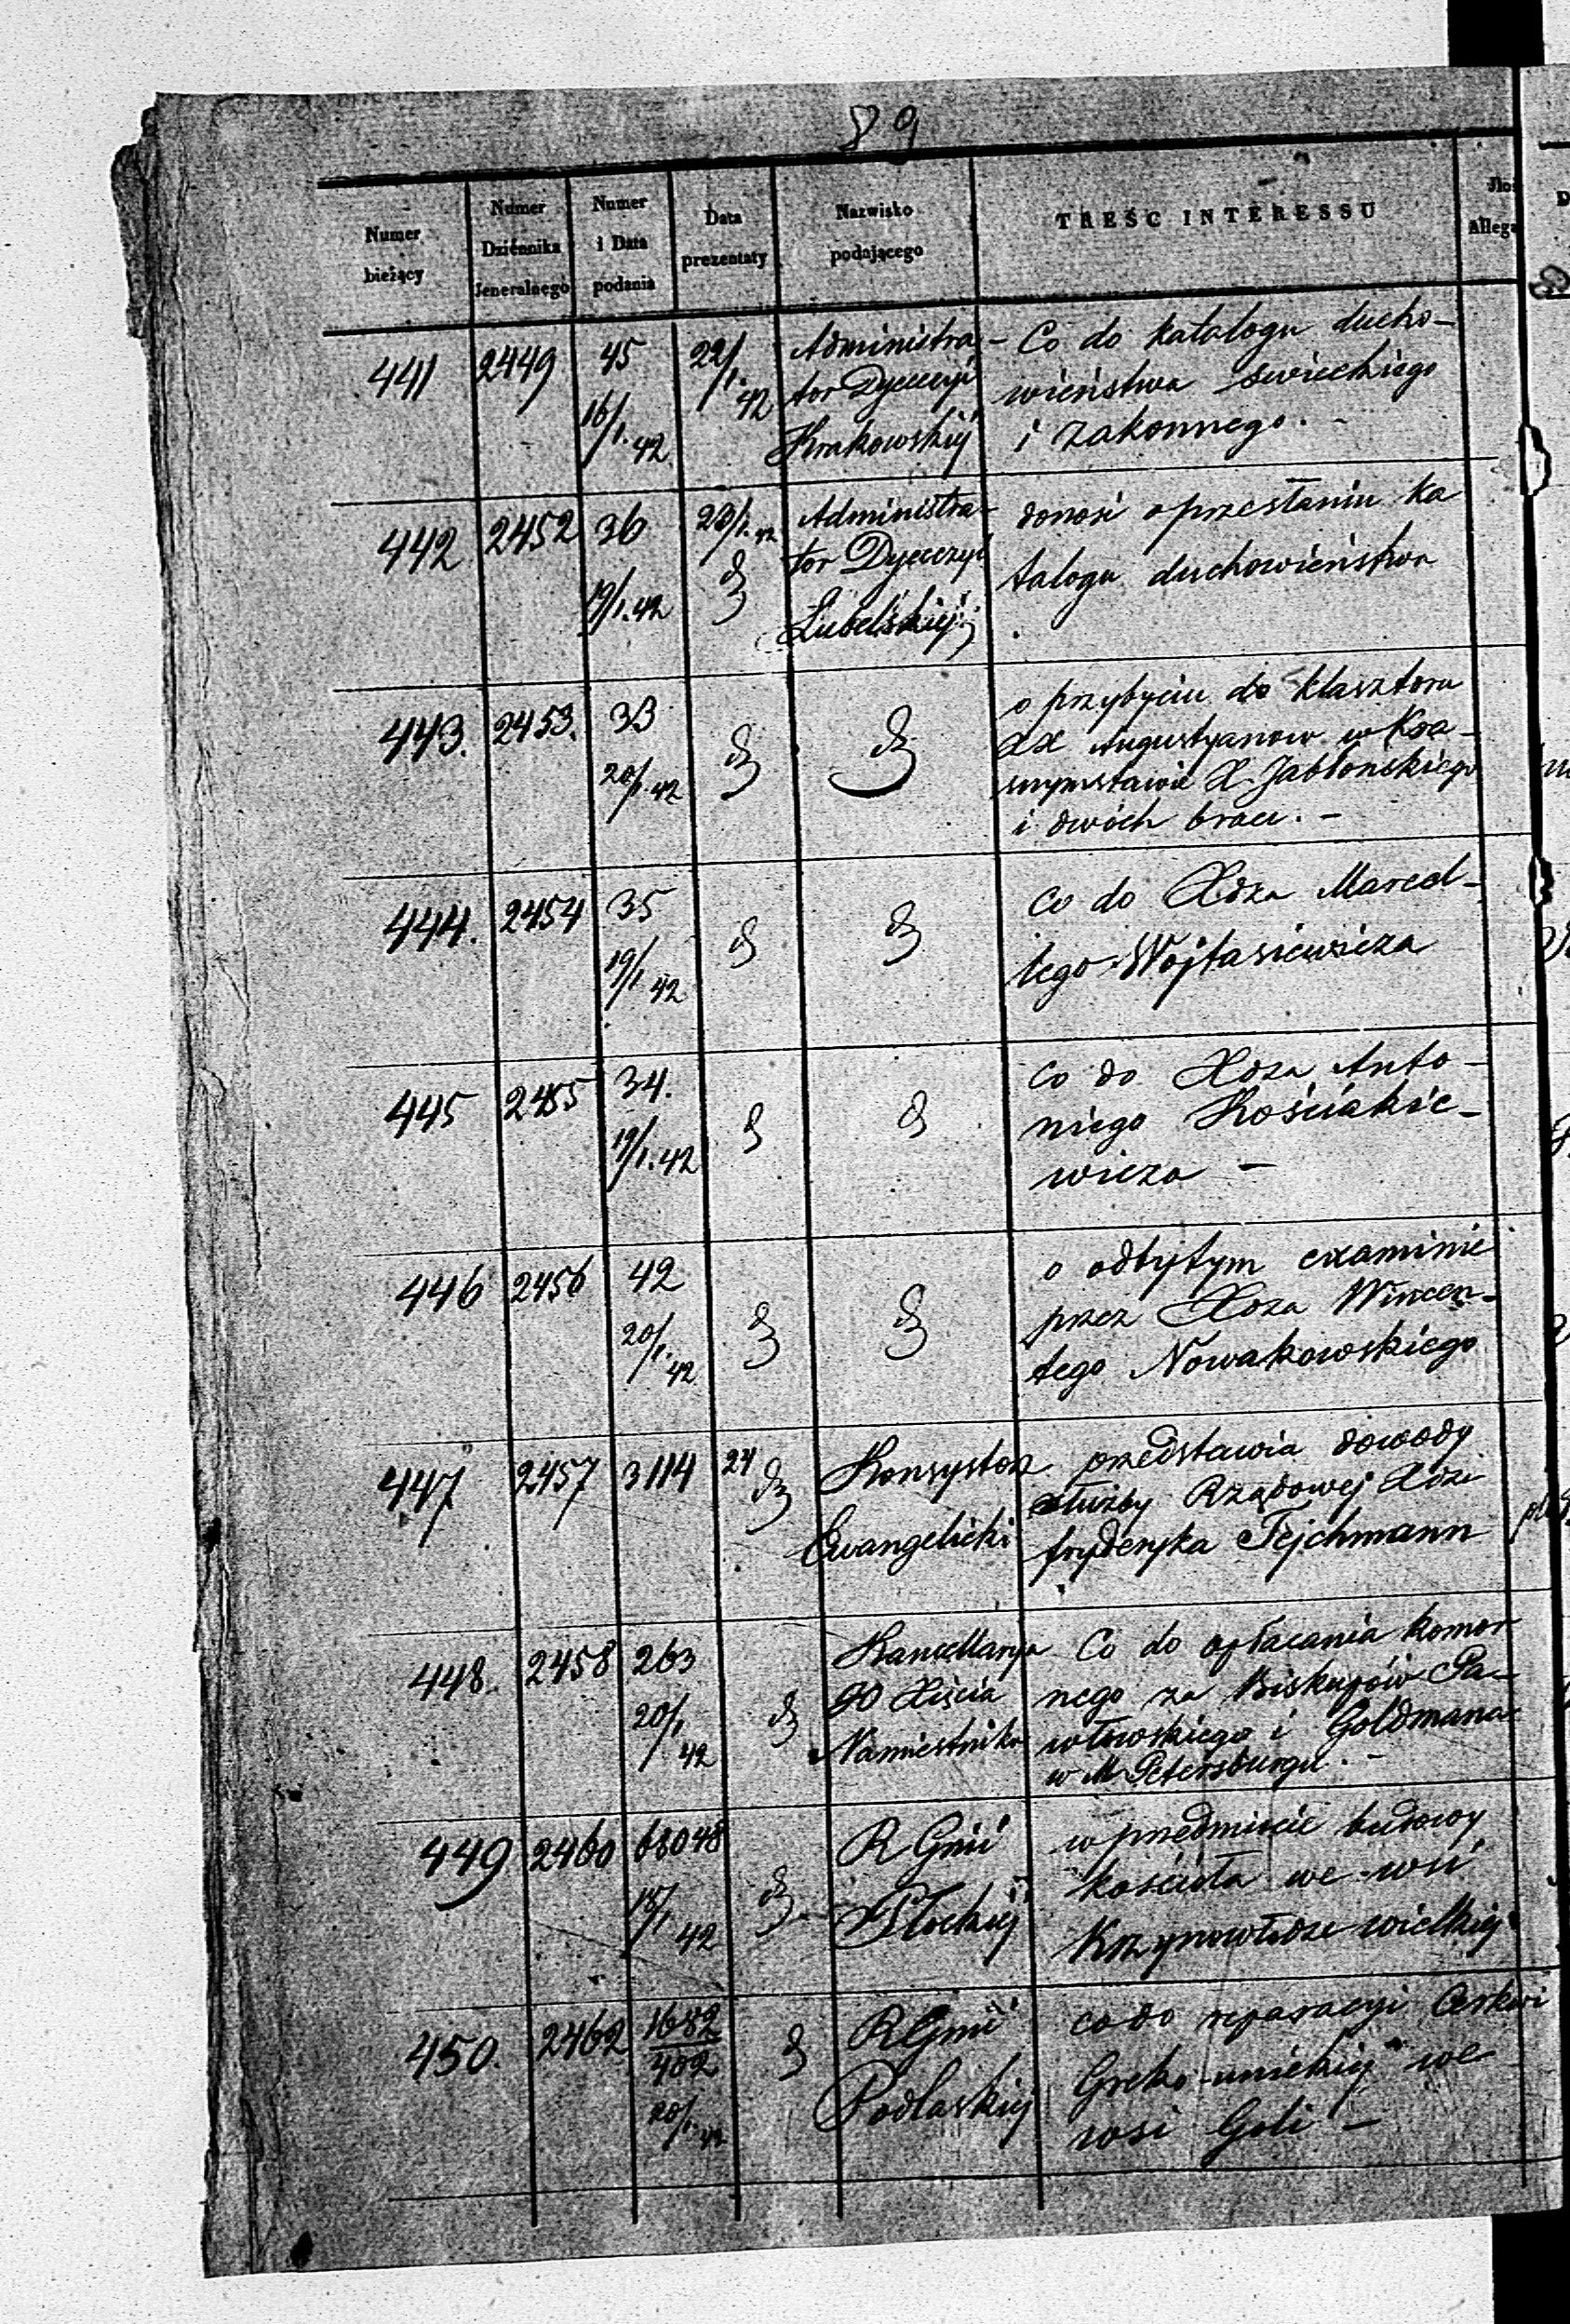 89
Numer bieżący
Numer Dziennika Jeneralnego
Numer i Data podania
Data prezentaty
Nazwisko podającego
TREŚĆ INTERESSU
441 2449 45 16/1.42 22/1.42
Administra-
tor Dyecezyi
Krakowskiej
Co do katalogu ducho-
wieństwa swieckiego
i zakonnego. -
442 2452 36 19/1.42 23/1.42
Administra-
tor Dyecezyi
Lubelskiej
donosi o przesłaniu ka
talogu duchowieństwa
443. 2453. 33 20/1.42
o przybyciu do klasztoru
XX Augustyanow w Kra-
snymstawie X. Jabłonskiego
i dwóch braci. -
444. 2454 35 19/1 42
Co do Xdza Marcel-
lego Wojtasiewicza
445 2455 34. 19/1.42
Co do Xdza Anto-
niego Kościakie-
wicza -
446 2456 42 20/1.42
o odbytym examinie
przez Xdza Wincen-
tego Nowakowskiego
447 2457 3114 24
Konsystorz
Ewangelicki
przedstawia dowody
służby Rządowej Xdzi
fryderyka Tejchmann
448. 2458 263 20/1 42
Kancellarya
JO Xięcia
Namiestnika
Co do opłacania komor
nego za Biskupów Pa-
włowskiego i Goldmana
w M Petersburgu. -
449 2460 68048 18/1 42
R Gnii
Płockiej
w przedmiocie budowy
kościoła we wsi
Krzynowłodze wielkiej
450. 2462 1682/402 20/1.42
R Gnii
Podlaskiej
co do reparacyi Cerkwi
Greko-unickiej we
wsi Goli -